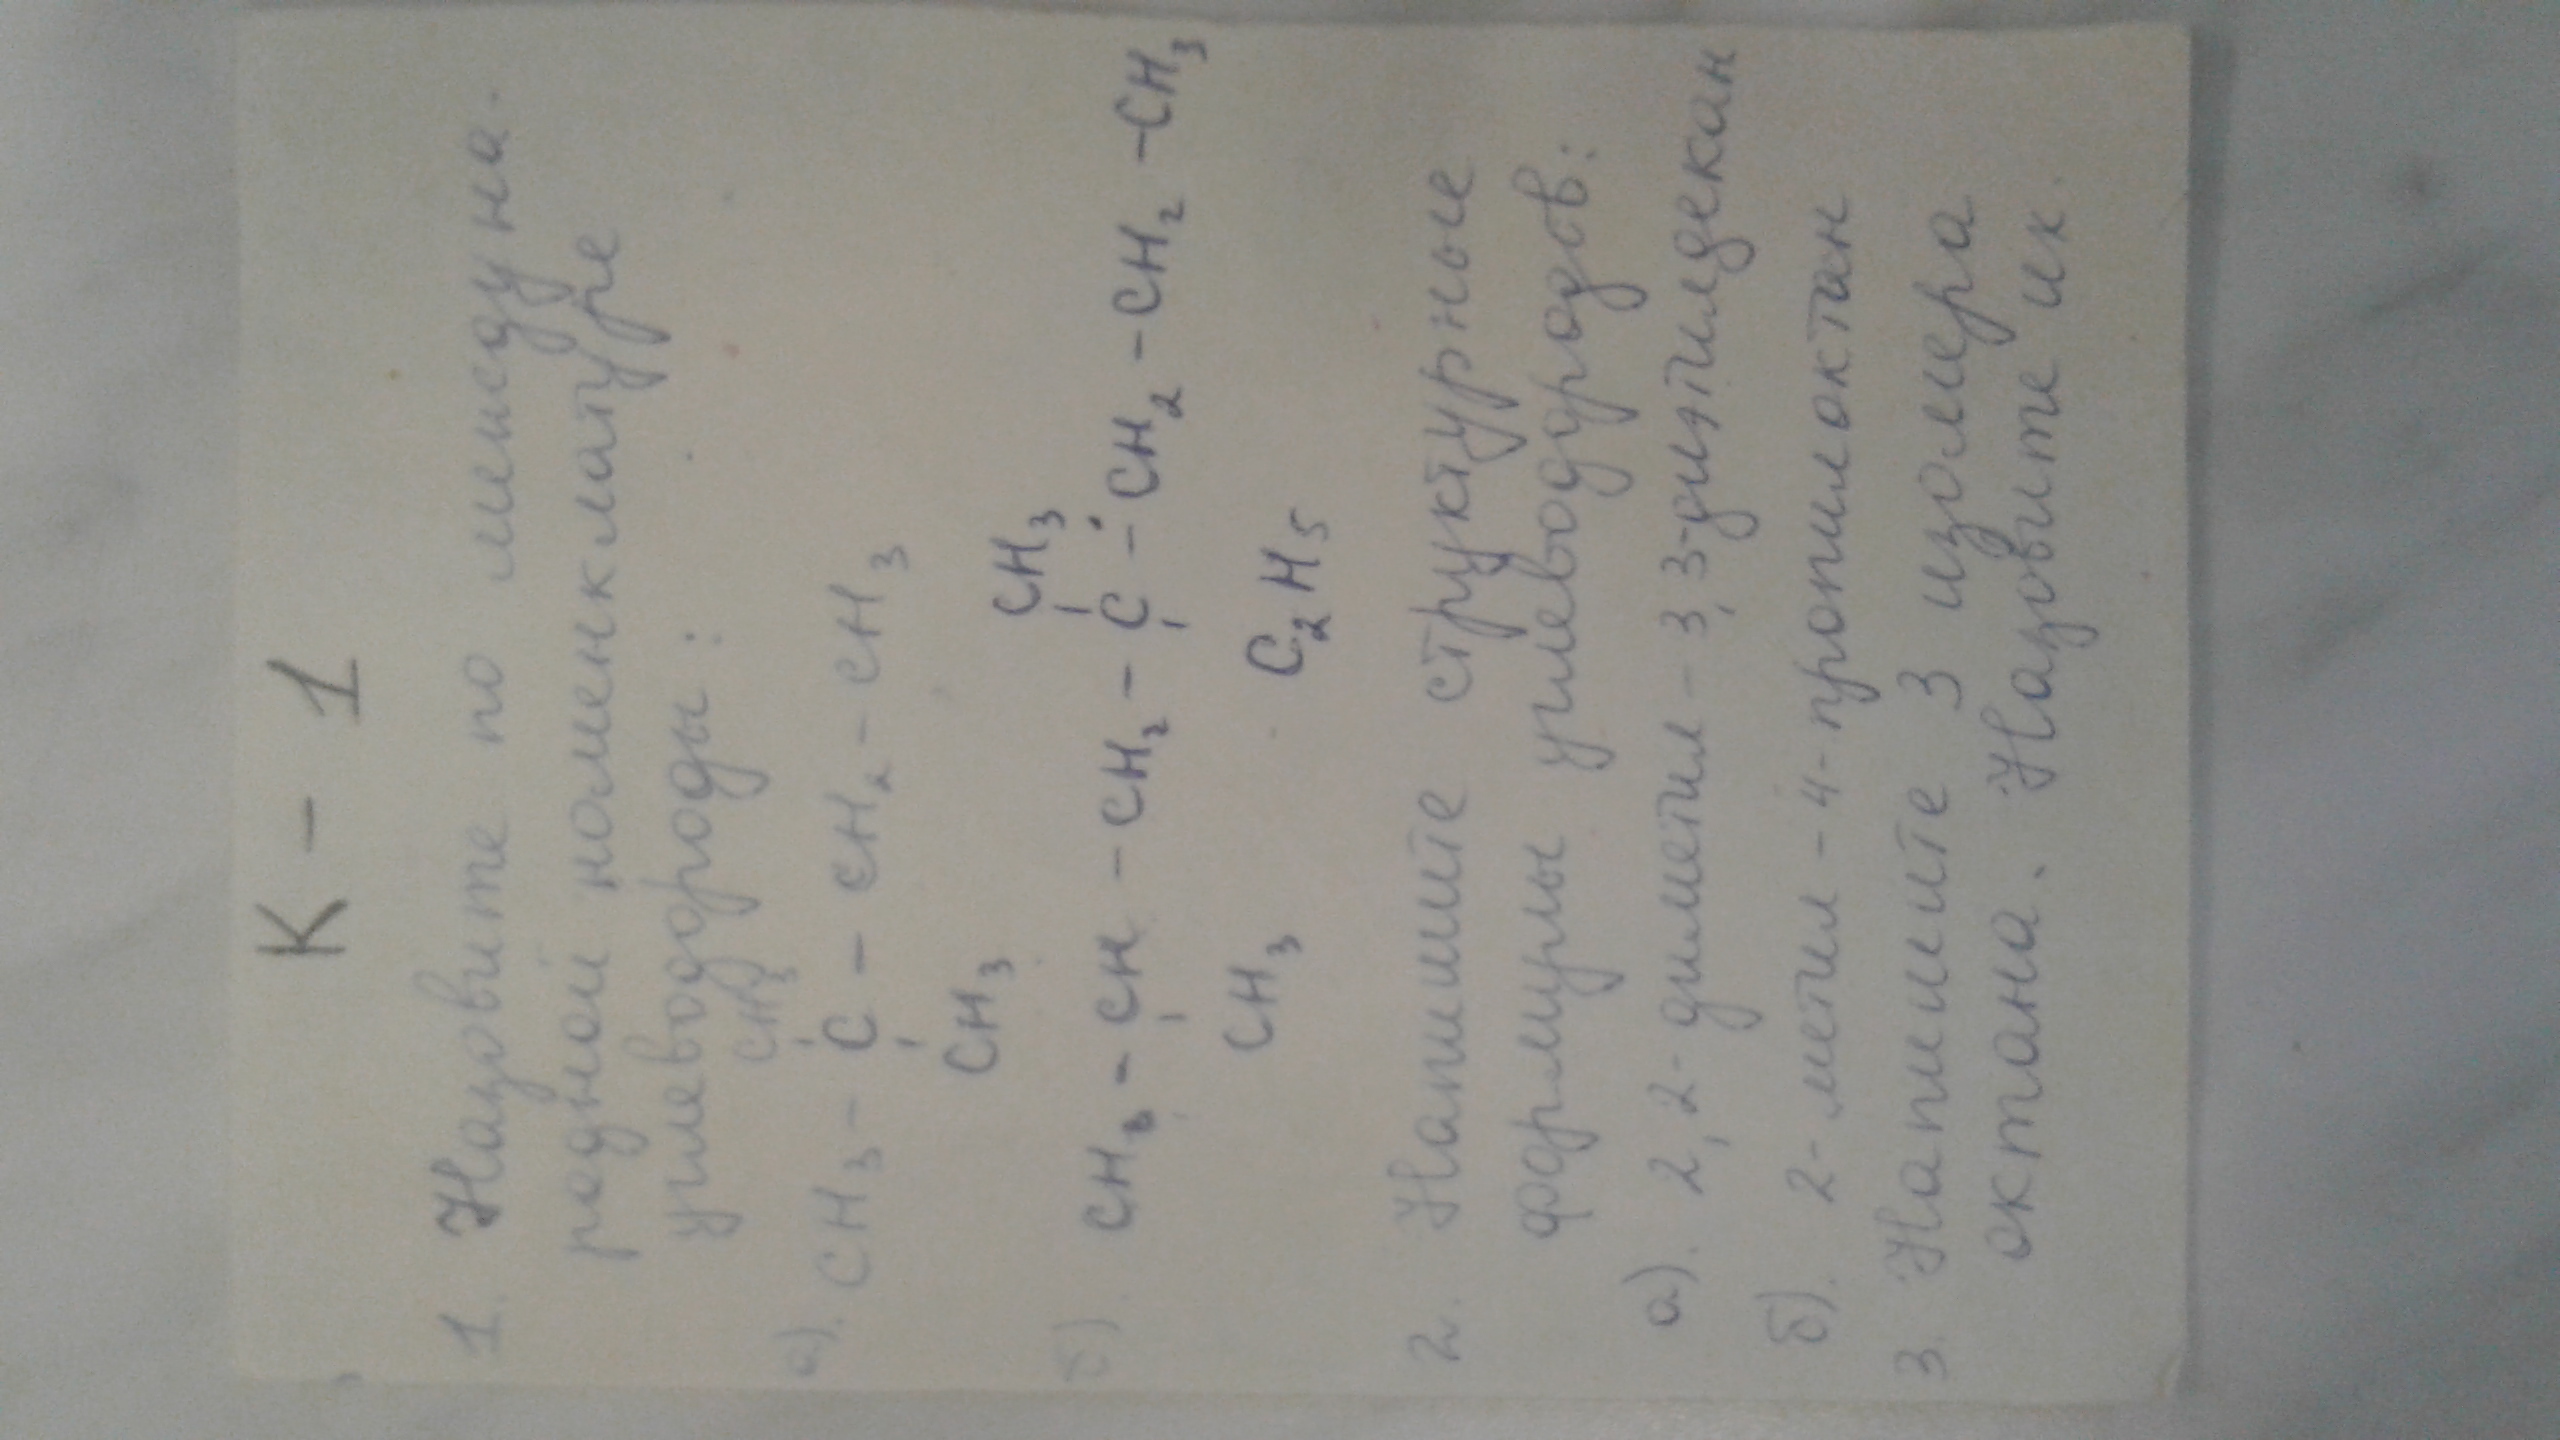 К - 1
1. Назовите по междуна-
родной номенклатуре
углеводороды:
CH3
а). CH3 - C - CH2 - CH3
CH3
CH3
б). CH3 - CH - CH2 - C - CH2 - CH2 - CH3
CH3 C2H5
2. Напишите структурные
формулы углеводородов:
а). 2,2-диметил-3,3-диэтилдекан
б). 2-метил-4-пропилоктан
3. Напишите 3 изомера
октана. Назовите их.